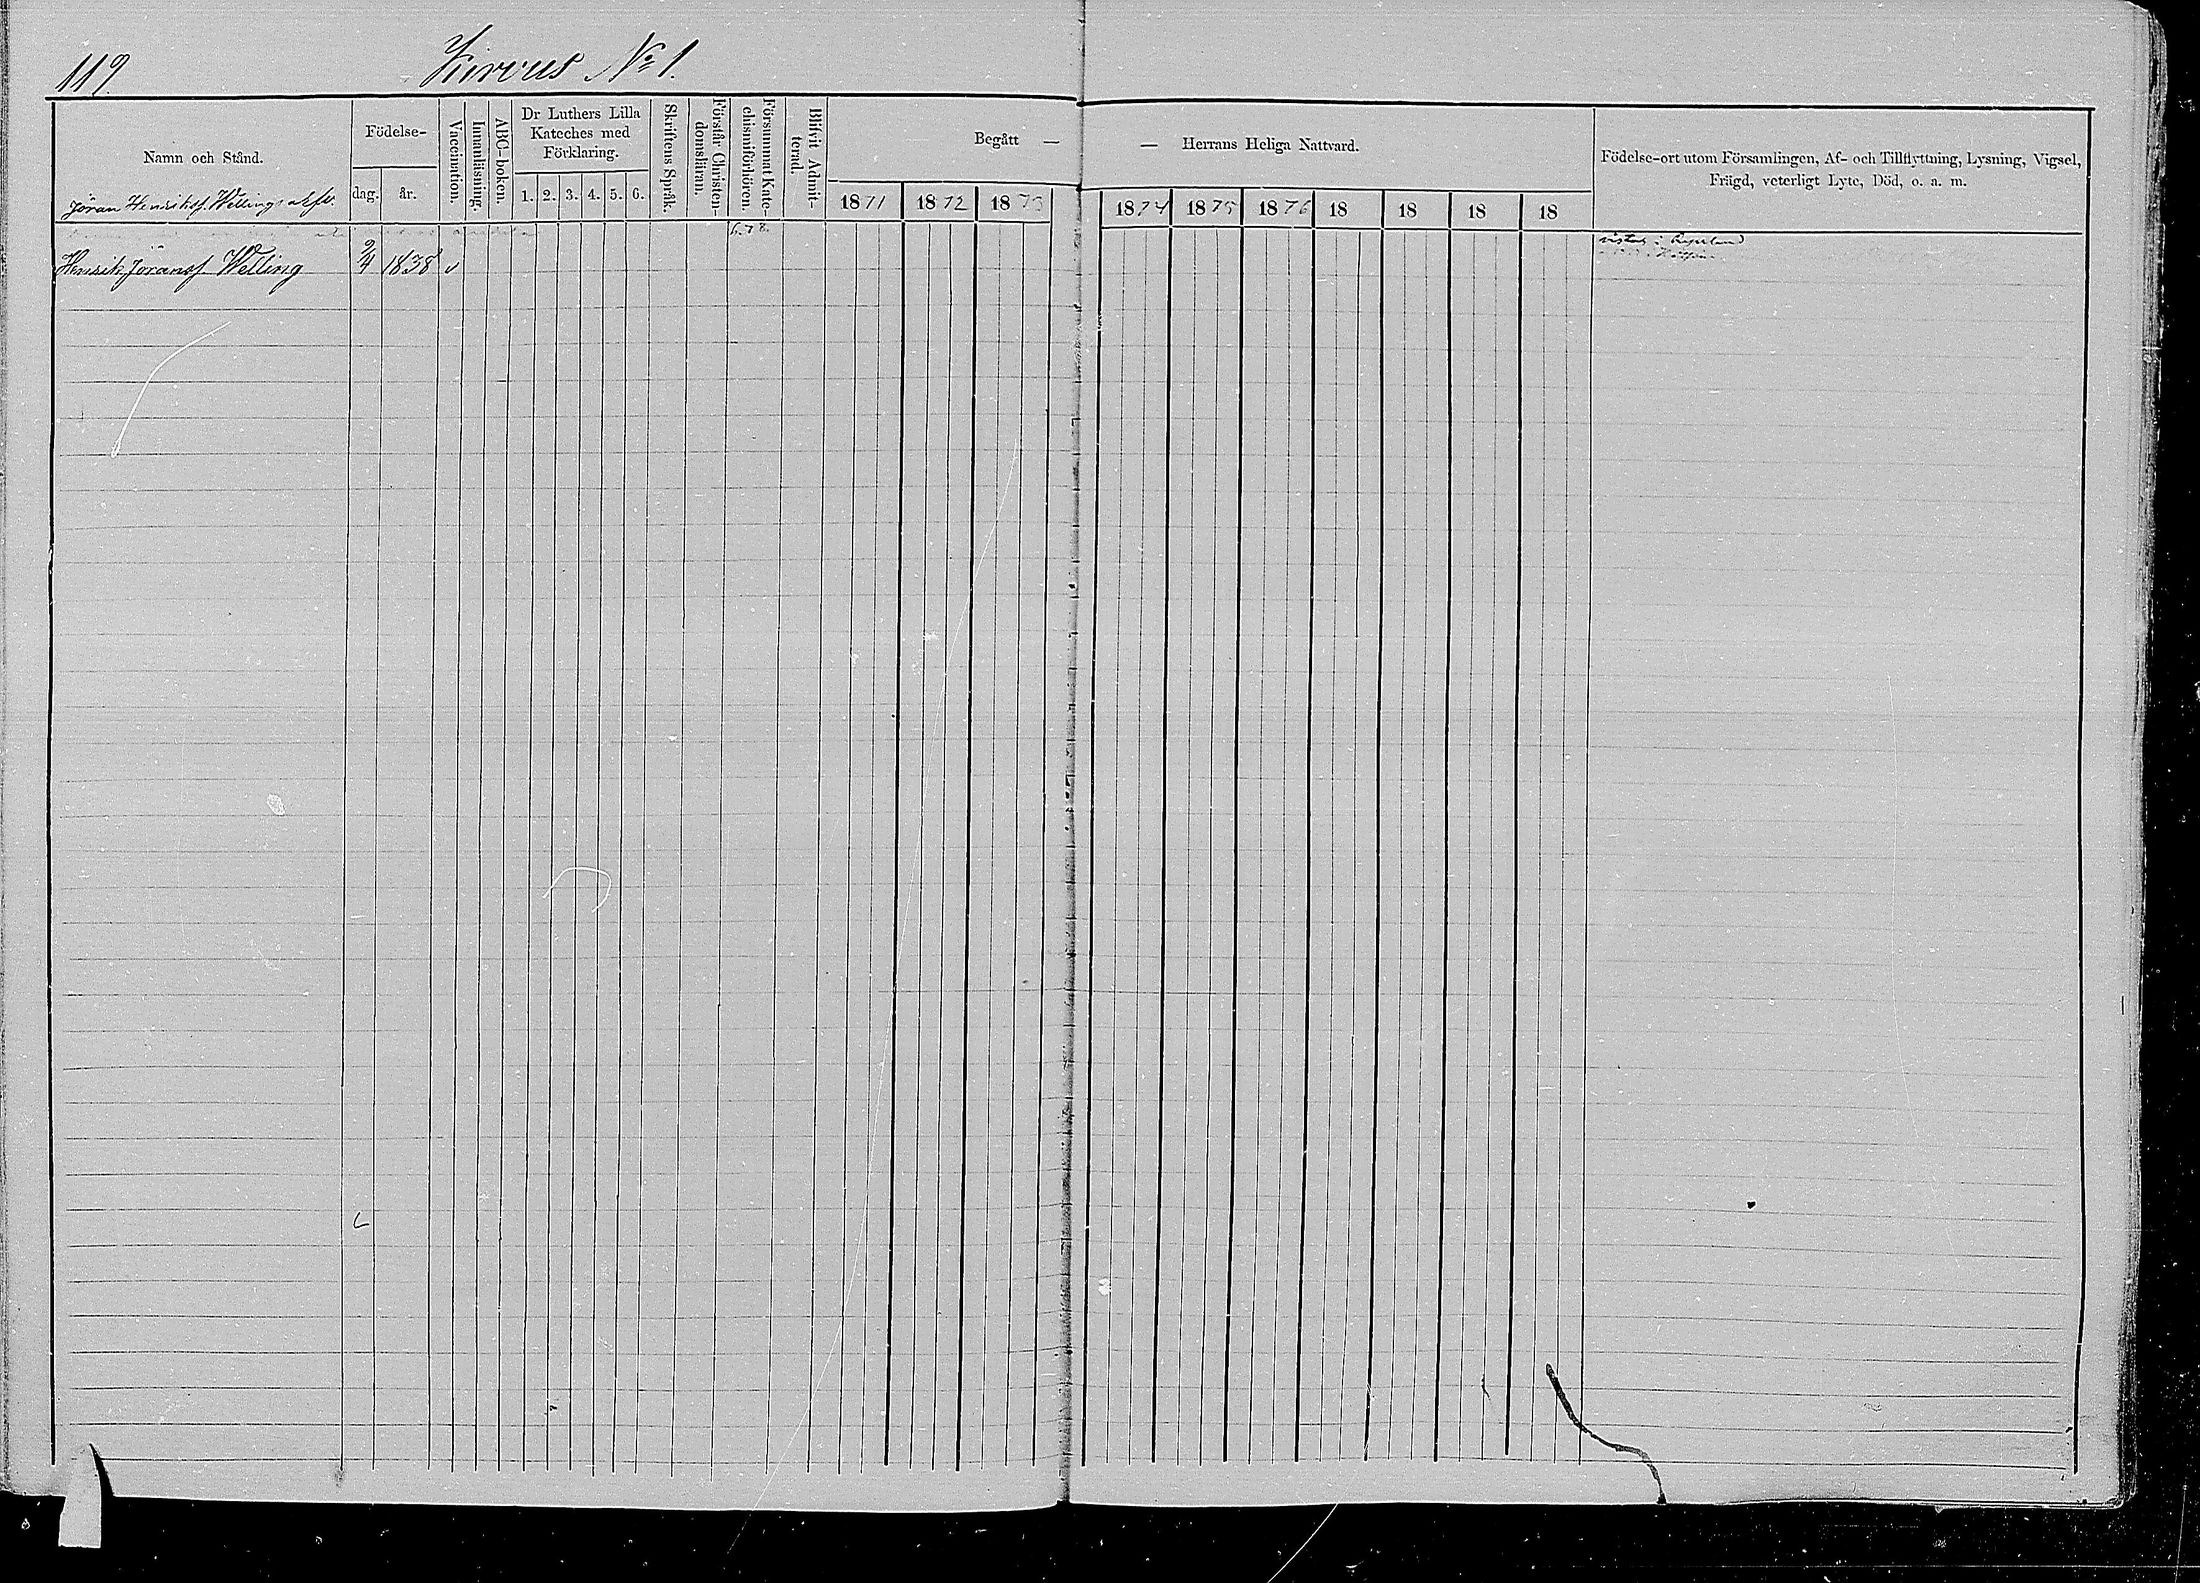 119.
Kirvus № 1.
Namn och Stånd.
Födelse-
dag.
år.
Vaccination.
Innanläsning.
ABC-boken.
Dr Luthers Lilla
Kateches med
Förklaring.
1. 2. 3. 4. 5. 6.
Skriftens Språk.
Förstår Christen-
domsläran.
Försummat Kate-
chismiförhören.
Blifvit Admit-
terad.
Begått —
— Herrans Heliga Nattvard.
1871 1872 1873
1874 1875 1876 18 18 18 18
Födelse-ort utom Församlingen, Af- och Tillflyttning, Lysning, Vigsel,
Frägd, veterligt Lyte, Död, o. a. m.
Jöran Henriksf. Welling
vistas i
Henrik Jöransf Welling 9/4 1838 v